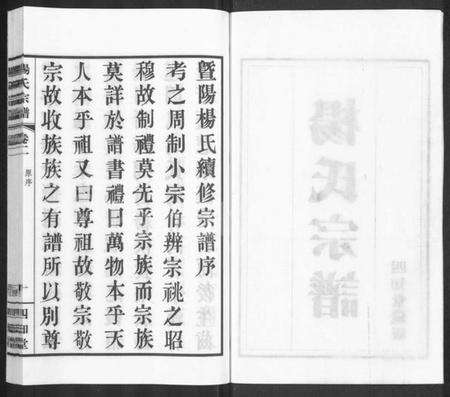 暨陽楊氏續修宗譜序
考之周制小宗伯辨宗祧之昭
穆故制禮莫先乎宗族而宗族
莫詳於譜書禮曰萬物本乎天
人本乎祖又曰尊祖故敬宗敬
宗故收族族之有譜所以別尊
楊氏宗譜
卷二
原序
一
四知堂
楊氏宗譜